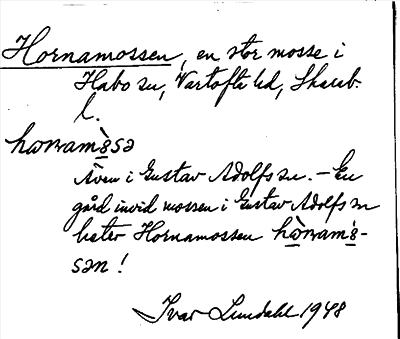 Hornamossen, en stor mosse i
Habo sn, Vartofta hd, Skarab.
l.
hωɳam`øsə
Även i Gustav Adolfs sn. – En
gård invid mossen i Gustav Adolfs sn
heter Hornamossen
sən!
Ivar Lundahl 1948